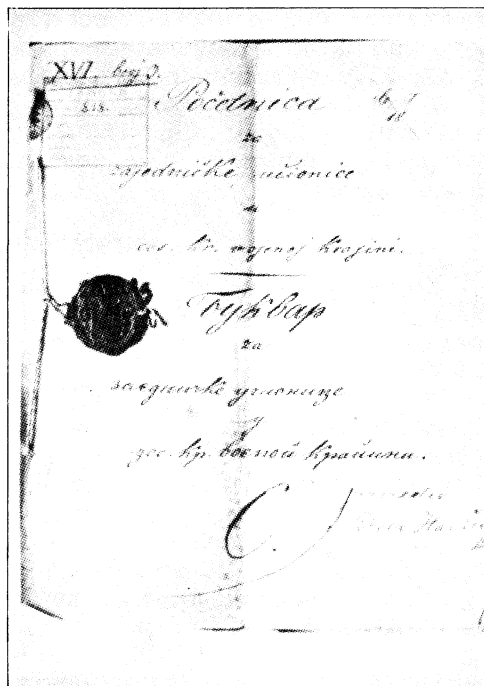 XVI. broj 3.
818.
Početnica
za
zajedničke učionice
u
ces. kr. vojenoj krajini.
Буквар
за
заєдничке учіонице
у
цес. кр. воєной країини.